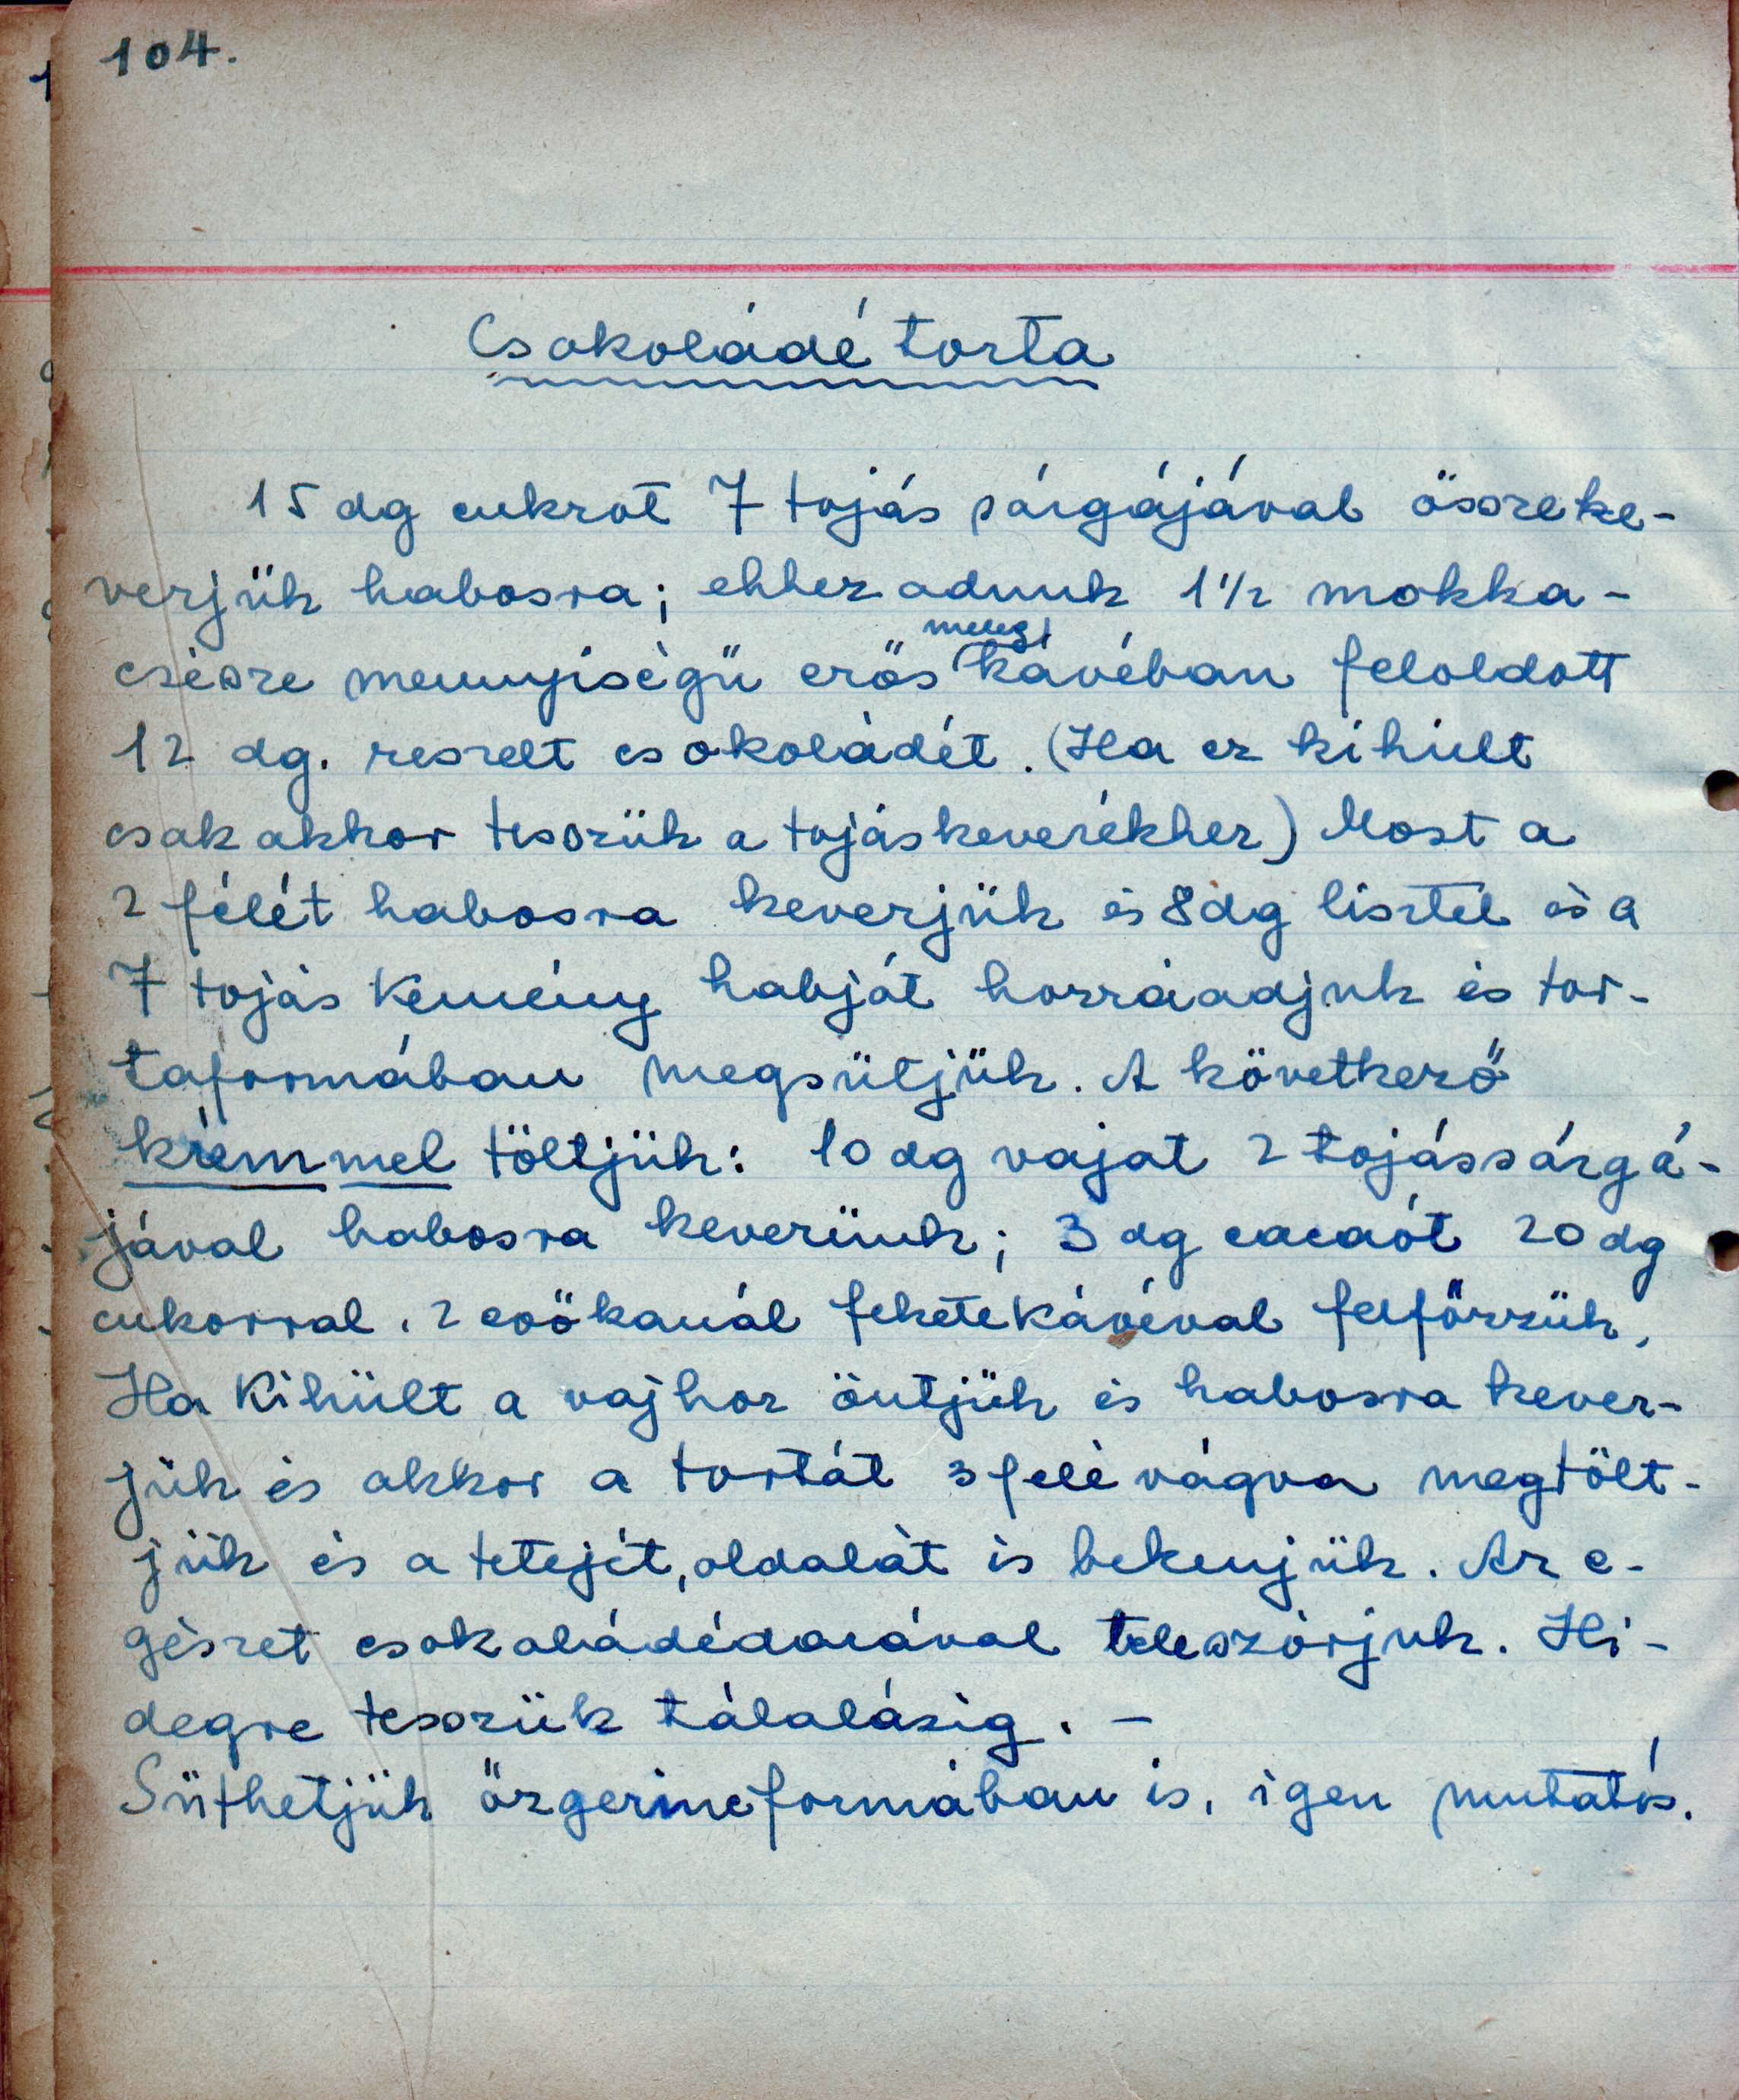 104.
Csokoládé torta
15 dg cukrot 7 tojás sárgájával össreke-
verjük habosra; ehhez adunk 1 1/2 mokka-
meleg
csésze mennyiségű erős kávéban feloldott
12 dg. reszelt csokoládét. (Ha ez kihült
csak akkor tesszük a tojáskeverékhez) Most a
2 félét habosra keverjük és 8 dg lisztel és a
7 tojás kemény habját hozzáadjuk és tor-
taformában megsütjük. A következő
krémmel töltjük: 10 dg vajat 2 tojássárgá-
jával habosra keverünk; 3 dg cacaót 20 dg
cukorral. 2 evőkanál feketekávéval felfőzzük,
Ha kihült a vajhoz öntjük és habosra kever-
jük és akkor a tortát 3 felé vágva megtölt-
jük és a tetejét, oldalát is bekenjük. Az e-
gészet csokoládédarával teleszórjuk. Hi-
degre tesszük tálalásig. -
Süthetjük őzgerincformában is, igen mutatós.